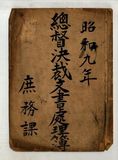 昭和九年
總督決裁文書處理簿
庶務課